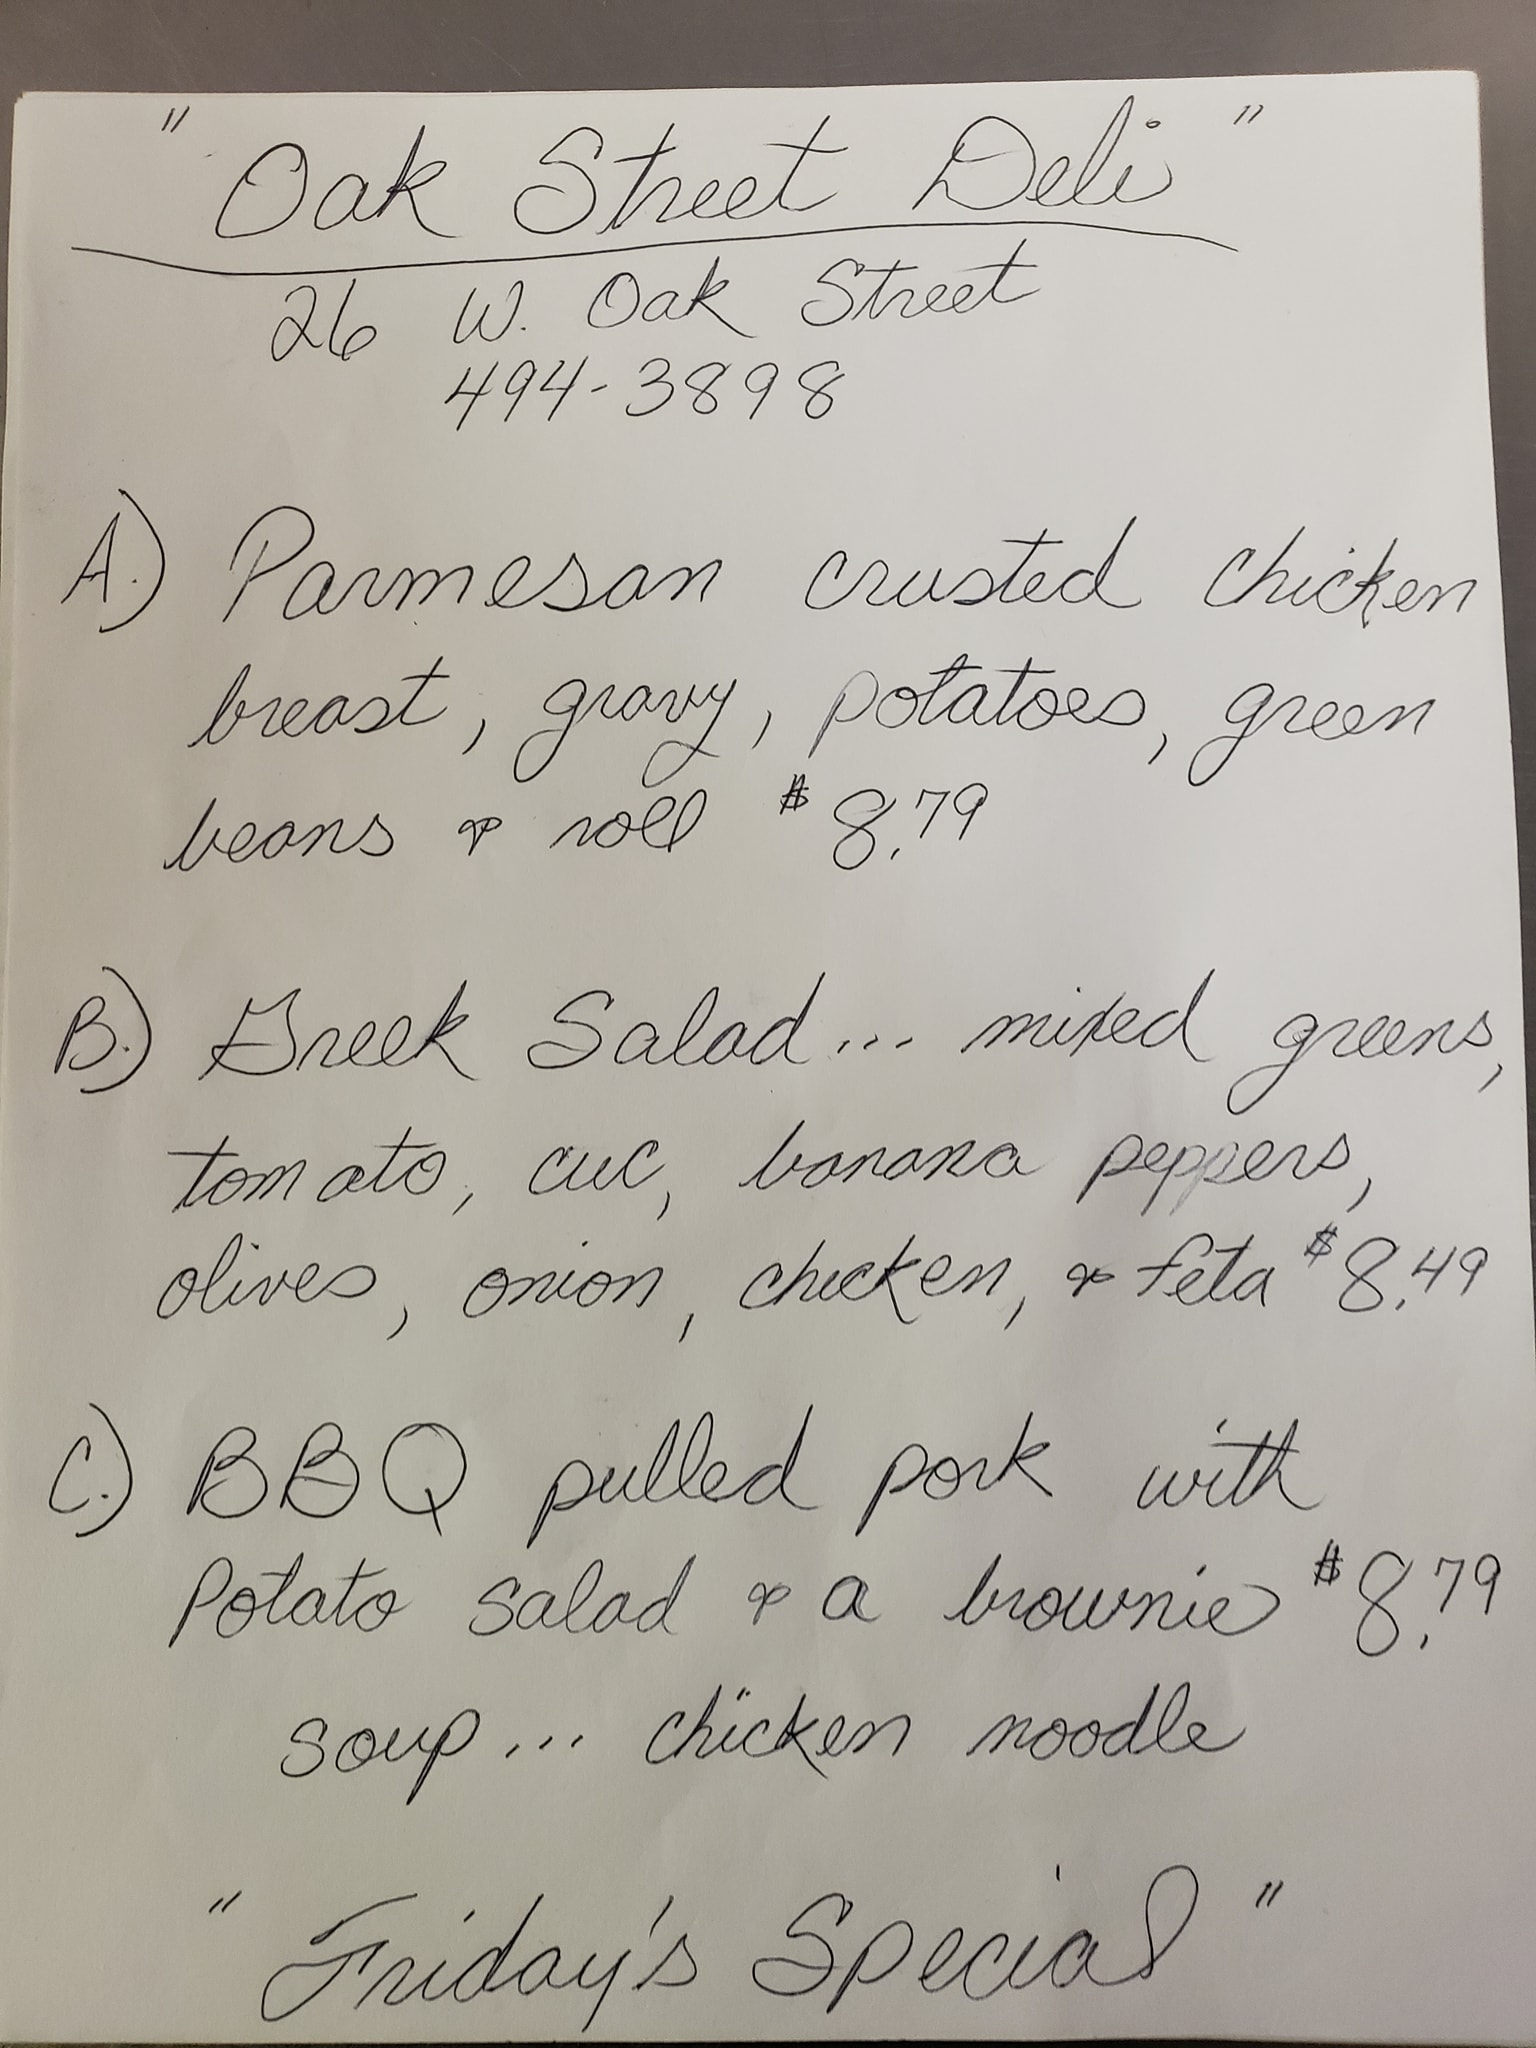 "Oak Street Deli"
26 W. Oak Street
494-3898
A.) Parmesan crusted chicken
breast, gravy, potatoes, green
beans & roll $8.79
B.) Greek Salad... mixed greens,
tomato, cuc, banana peppers,
olives, onion, chicken, & feta $8.49
C.) BBQ pulled pork with
Potato salad & a brownie $8.79
soup... chicken noodle
"Friday's Special"